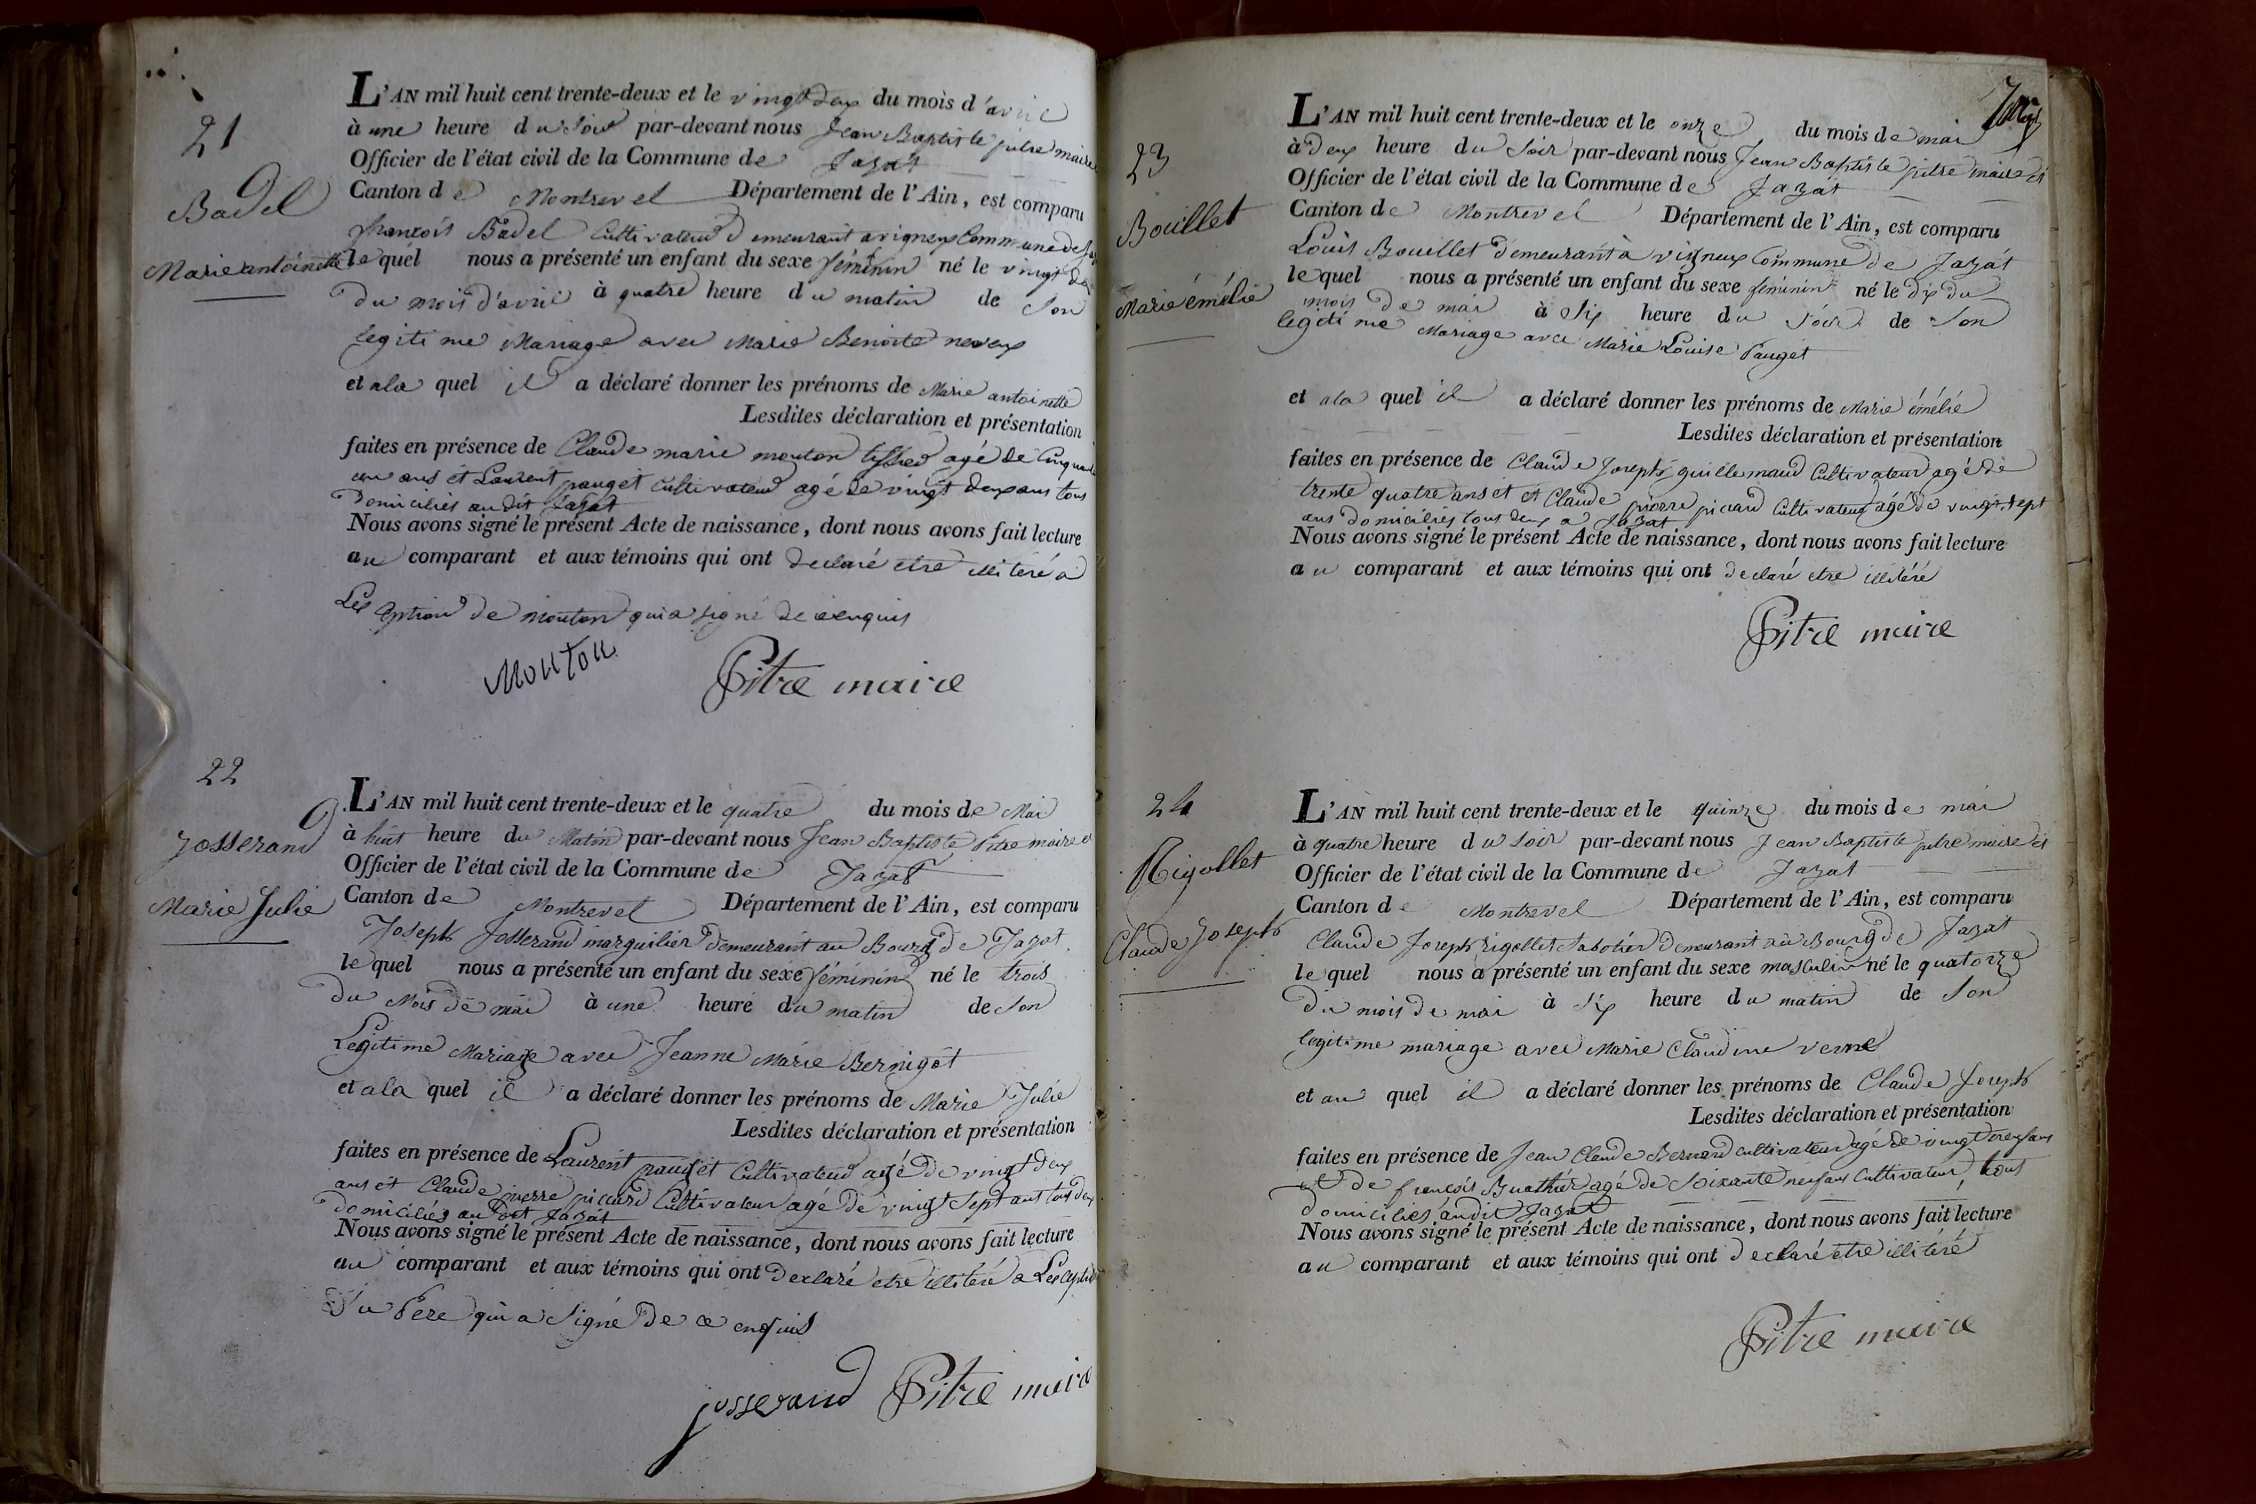 21
Badel
Marie antoinette
L'AN mil huit cent trente-deux et le vingt deux du mois d'avril
à une heure du soir par-devant nous Jean Baptiste pitre maire
Officier de l'état civil de la Commune de Jayat
Canton de Montrevel Département de l'Ain, est comparu
françois Badel Cultivateur demeurant a vigneux Commune de
lequel nous a présenté un enfant du sexe féminin né le vingt deux
du mois d'avril à quatre heure du matin de Son
legitime Mariage avec Marie Benoite neveux
et ala quel il a déclaré donner les prénoms de Marie antoinette
Lesdites déclaration et présentation
faites en présence de Claude marie mouton agé de Cinquante
un ans et Laurent pauget Cultivateur agé de vingt deux ans tous
Domiciliés audit Jayat
Nous avons signé le présent Acte de naissance, dont nous avons fait lecture
au comparant et aux témoins qui ont declaré etre illitéré a
Lexception de mouton qui a signé de
Mouton Pitre maire
22
Josserand
Marie Julie
L'AN mil huit cent trente-deux et le quatre du mois de Mai
à huit heure du Matin par-devant nous Jean Baptiste Pitre maire et
Officier de l'état civil de la Commune de Jayat
Canton de Montrevel Département de l'Ain, est comparu
Joseph Josserand marguilier demeurant au Bourg de Jayat
lequel nous a présenté un enfant du sexe féminin né le trois
du Mois de mai à une heure du matin de Son
Legitime Mariage avec Jeanne Marie Bernigot
et ala quel il a déclaré donner les prénoms de Marie Julie
Lesdites déclaration et présentation
faites en présence de Laurent pauget Cultivateur agé de vingt deux
ans et Claude pierre picard Cultivateur agé de vingt Sept ans tous deux
domiciliés au dit Jayat
Nous avons signé le présent Acte de naissance, dont nous avons fait lecture
au comparant et aux témoins qui ont declaré etre illitéré a Lexception
du Pere qui a Signé de ce enquis
josserand Pitre maire
23
Bouillet
Marie émélie
L'AN mil huit cent trente-deux et le onze du mois de mai
à deux heure du Soir par-devant nous Jean Baptiste pitre maire et
Officier de l'état civil de la Commune de Jayat
Canton de Montrevel Département de l'Ain, est comparu
Louis Bouillet demeurant à vigneux Commune de Jayat
lequel nous a présenté un enfant du sexe féminin né le dix du
mois de mai à Six heure du Soir de Son
legitime Mariage avec Marie Louise Pauget
et ala quel il a déclaré donner les prénoms de Marie émélie
Lesdites déclaration et présentation
faites en présence de Claude Joseph guillemaud Cultivateur agé de
trente quatre ans et et Claude pierre picard Cultivateur agé de vingt sept
ans domiciliés tous deux a Jayat
Nous avons signé le présent Acte de naissance, dont nous avons fait lecture
au comparant et aux témoins qui ont declaré etre illitéré
Pitre maire
24
Rigollet
Claude Joseph
L'AN mil huit cent trente-deux et le quinze du mois de mai
à quatre heure du Soir par-devant nous Jean Baptiste pitre maire et
Officier de l'état civil de la Commune de Jayat
Canton de Montrevel Département de l'Ain, est comparu
Claude Joseph rigollet Sabotier demeurant au Bourg de Jayat
lequel nous a présenté un enfant du sexe masculin né le quatorze
du mois de mai à Six heure du matin de Son
legitime mariage avec Marie Claudine verne
et au quel il a déclaré donner les prénoms de Claude Joseph
Lesdites déclaration et présentation
faites en présence de Jean Claude Bernard cultivateur agé de vingt ans
et de françois Buathier agé de Soixante neuf ans Cultivateur, tous
domiciliés audit Jayat
Nous avons signé le présent Acte de naissance, dont nous avons fait lecture
au comparant et aux témoins qui ont declaré etre illitéré
Pitre maire